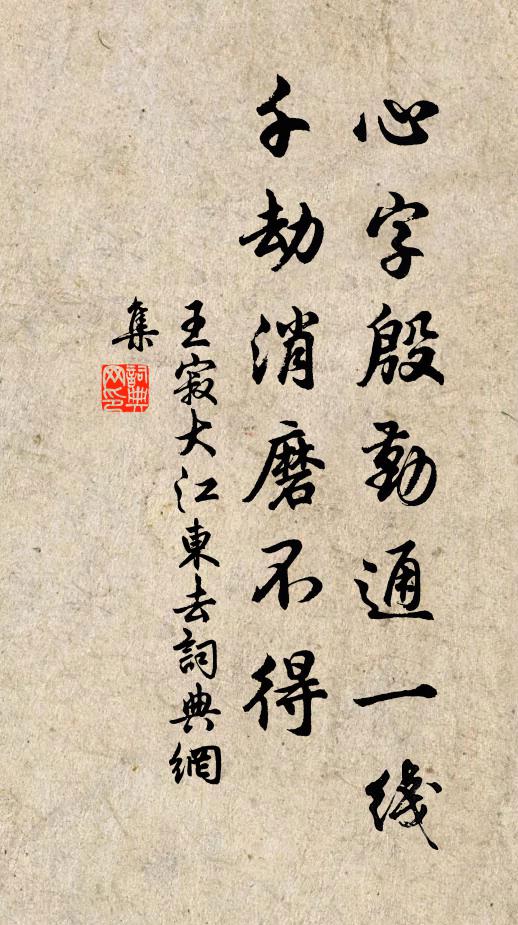 心字殷勤通一綫
千劫消磨不得
王寂大江東去詞典網
集
詞典網印